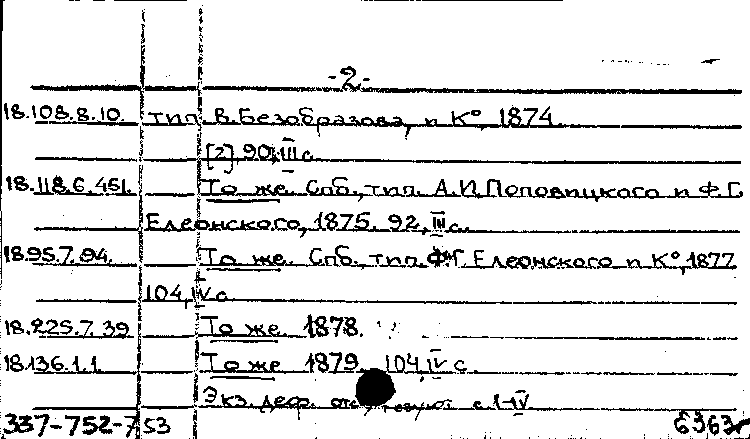 -2-
18.108.8.10. тип. В. Безобразова и К°, 1874.
[2], 90, III с.
18.118.6.451. То же. Спб., тип. А.И. Поповицкого и Ф.Г.
Елеонского, 1875. 92, III с.
18.95.7.94. То же. Спб., тип. Ф.Г. Елеонского и К°, 1877
104, IV с.
18.225.7.39 То же. 1878.
18.136.1.1. То же 1879. 104, IV с.
Экз. деф. отсутствуют с. I-IV
337-752-753 6363